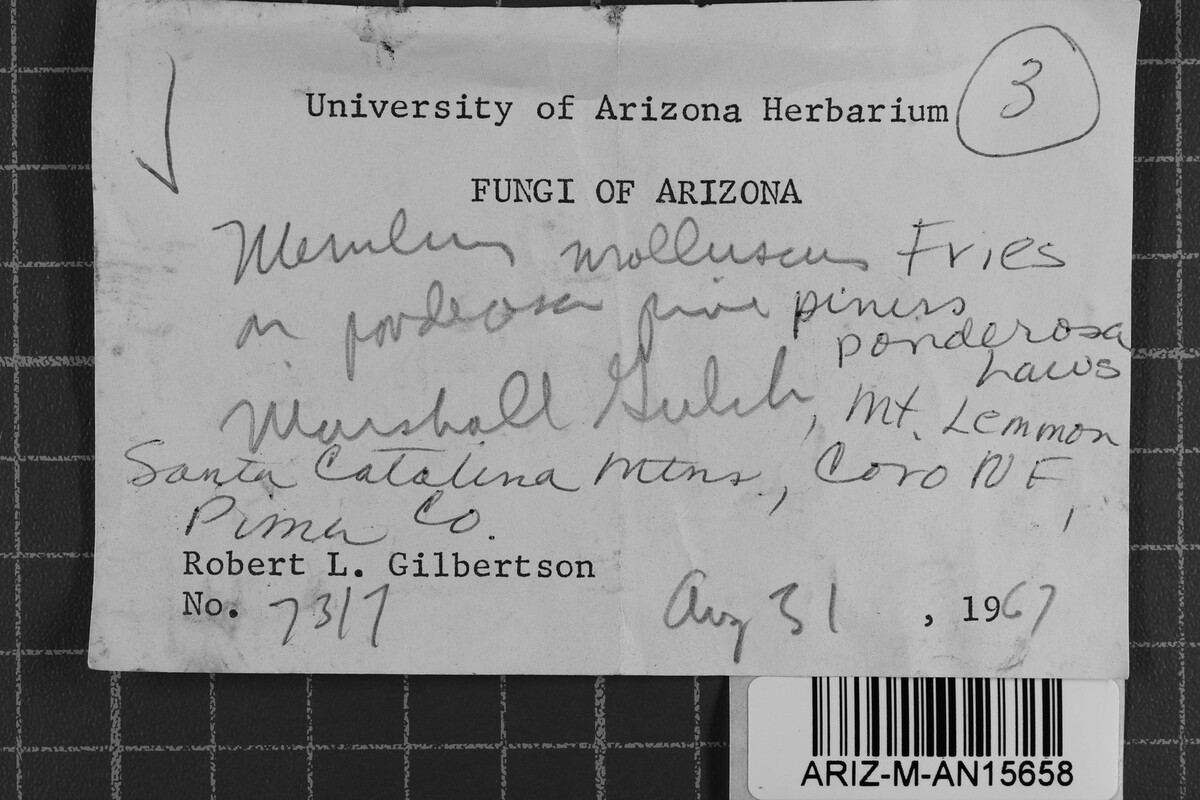 3
University of Arizona Herbarium
FUNGI OF ARIZONA
Merulius molluscus Fries
on ponderosa pine pinus
ponderosa
Laws
Marshall Gulch, Mt. Lemmon
Santa Catalina Mtns., Coro N F,
Pima Co.
Robert L. Gilbertson
No. 7317
Aug 31, 1967
ARIZ-M-AN15658